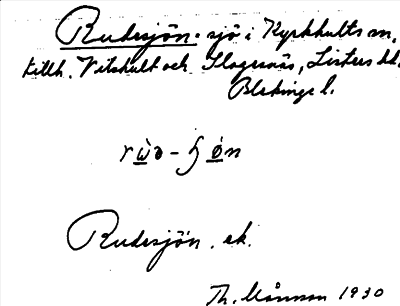 Rudesjön. sjö i Kyrkhults sn.
tillh. Vilshult och Slagesnäs, Listers hd.
Blekinge l.
Rudesjön. ek.
Th. Månsson 1930